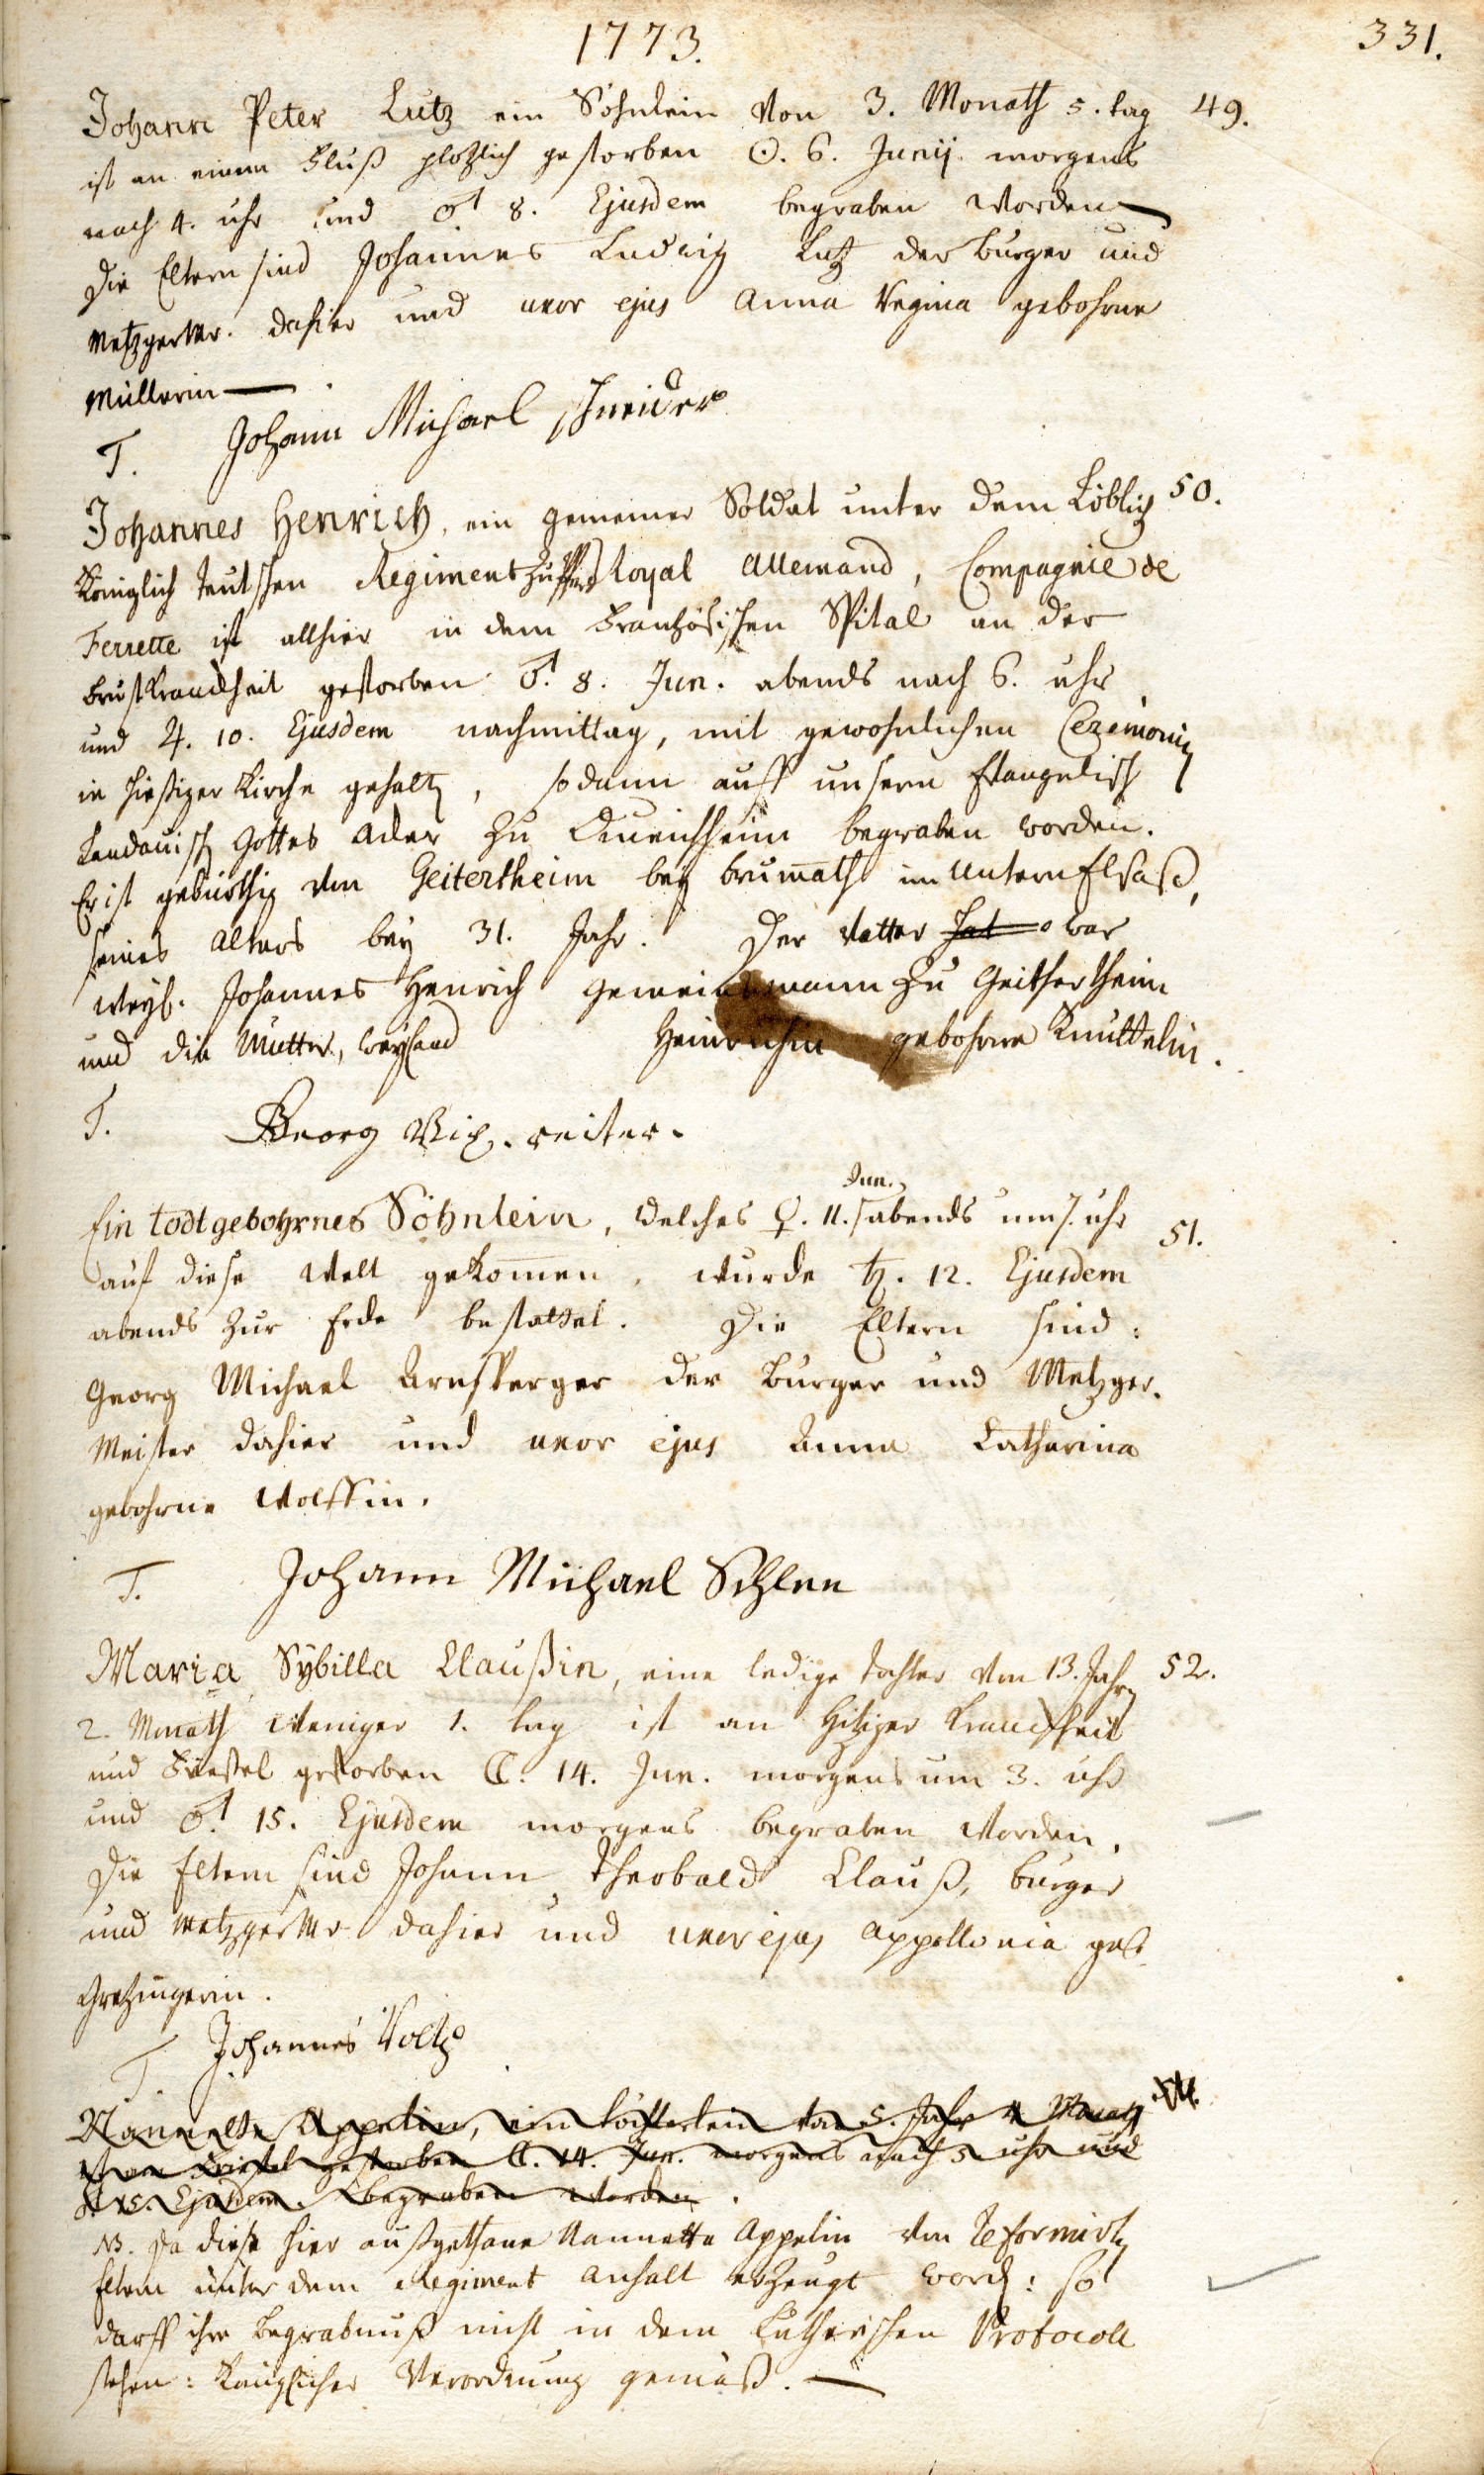 1773.
331.
Johann Peter Lutz ein Söhnlein von 3. Monath 5. tag 49.
ist an einem Fluß plötzlich gestorben ☉. 6. Junij. morgens
nach 4. uhr und ♂ 8. Ejusdem begraben worden
Die Eltern sind Johannes Ludwig Lutz der burger und
Metzgermr. dahier und uxor ejus Anna Regina gebohrne
Müllerin
T. Johann Michael Schneider
Johannes Henrich, ein gemeiner Soldat unter dem Löblich 50.
Königlich teutschen Regiment zu Royal Allemand, Compagnie de
Ferrette ist allhier in dem Französischen Spital an der
brustkranckheit gestorben ♂. 8. Jun. abends nach 6. uhr
und ♃. 10. Ejusdem nachmittag, mit gewohnlichen Ceremonien
in hießiger Kirche gehalten, sodann auff unsern Evangelisch
Landauisch Gottes Acker zu Queichheim begraben worden.
Er ist gebürthig von Geitertheim bey brumath im Untern Elsaß,
seines Alters bey 31. Jahr. Der Vatter hat war
weyl. Johannes Henrich Gemeinsmann zu Geithertheim
und die Mutter, weyland Heinrichin gebohrne Knuttelin.
T. Georg reiter.
Jun.
Ein todtgebohrnes Söhnlein, welches ♀. 11. abends um 7. uhr
51.
auf diese Welt gekomen, wurde ♄. 12. Ejusdem
abends zur Erde bestattet. Die Eltern sind:
Georg Michael Arnsperger der burger und Metzger.
Meister dahier und uxor ejus Anna Catharina
gebohrne Wolffin.
T. Johann Michael Schlee
Maria Sybilla Claußin, eine ledige tochter von 13. Jahren 52.
2. Monath weniger 1. tag ist an hitziger kranckheit
und Frießel gestorben ☾. 14. Jun. morgens um 3. uhr
und ♂. 15. Ejusdem morgens begraben worden.
Die Eltern sind Johann Theobald Clauß, burger
und Metzgermr dahier und uxor ejus Appollonia geb.
Gretzingerin.
T. Johannes Voltz
Nannette Appelin, ein töchterlein von 5. Jahr 4 Monath
ist an Frießel gestorben ☾. 14. Jun. morgens nach 3 uhr und
♂. 15. Ejusdem. begraben worden.
NB. Da diese hier außgethane Nannette Appelin von reformirten
Eltern unter dem Regiment Anhalt erzeugt worden: so
darff ihre begrabnuß nicht in dem Lutherischen Protocoll
stehen: Königlicher Verordnung gemäß.